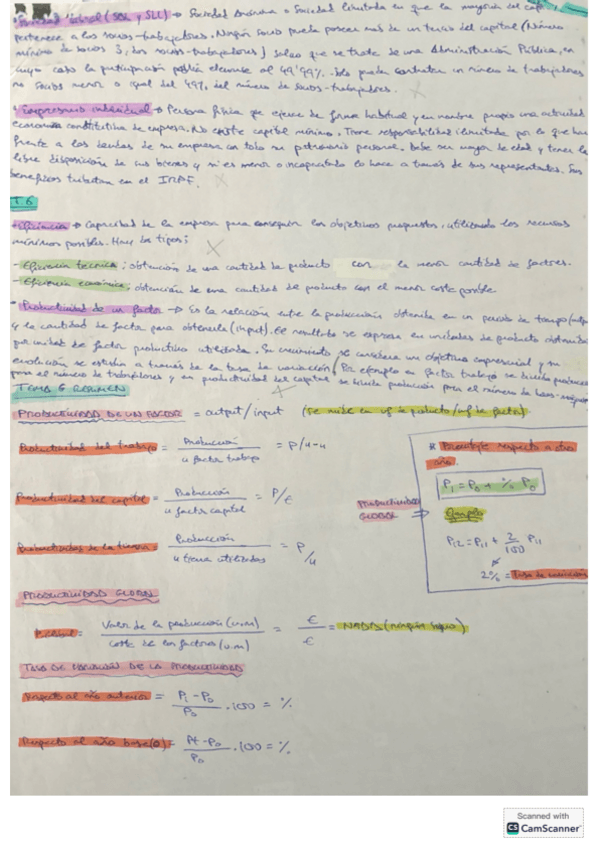 Sociedad laboral (SAL y SLL) → Sociedad Anónima o Sociedad limitada en que la mayoría del cap
pertenece a los socios-trabajadores. Ningún socio puede poseer más de un tercio del capital (Número
mínimo de socios 3, dos socios-trabajadores) salvo que se trate de una Administración Pública, en
cuyo caso la participación podría elevarse al 49'99%. Solo pueden contratar un número de trabajadores
no socios menor o igual del 49% del número de socios-trabajadores.
• Empresario individual → Persona física que ejerce de forma habitual y en nombre propio una actividad
económica constitutiva de empresa. No existe capital mínimo. Tiene responsabilidad ilimitada por lo que hace
frente a las deudas de su empresa con todo su patrimonio personal. Debe ser mayor de edad y tener la
libre disposición de sus bienes y si es menor o incapacitado lo hace a través de sus representantes. Sus
beneficios tributan en el IRPF.
T.6
• Eficiencia → Capacidad de la empresa para conseguir los objetivos propuestos, utilizando los recursos
mínimos posibles. Hay dos tipos:
- Eficiencia técnica: obtención de una cantidad de producto con la menor cantidad de factores.
- Eficiencia económica: obtención de una cantidad de producto con el menor coste posible.
• Productividad de un factor → Es la relación entre la producción obtenida en un periodo de tiempo/output
y la cantidad de factor para obtenerla (input). El resultado se expresa en unidades de producto obtenida
por unidad de factor productivo utilizada. Su crecimiento se considera un objetivo empresarial y su
evolución se estudia a través de la tasa de variación. Por ejemplo en factor trabajo se divide producción
para el número de trabajadores y en productividad del capital se divide producción para el número de horas-máquina
TEMA 6 RESUMEN
PRODUCTIVIDAD DE UN FACTOR = output/input (Se mide en uf de producto/uf de factor)
Productividad del trabajo = Producción / u factor trabajo = P/u-u
Productividad del capital = Producción / u factor capital = P/€
Productividad de la tierra = Producción / u tierra utilizadas = P/u
PRODUCTIVIDAD GLOBAL
P global = Valor de la producción (u.m) / coste de los factores (u.m) = € / € = NADA (ningún signo)
TASA DE VARIACIÓN DE LA PRODUCTIVIDAD
Respecto al año anterior = P1 - P0 / P0 · 100 = %
Respecto al año base(0) = Pt - P0 / P0 · 100 = %
PRODUCTIVIDAD
GLOBAL ⇒
* Porcentaje respecto a otro
año.
P1 = P0 + % P0
Ejemplo
P12 = P11 + 2/100 P11
2% = Tasa de variación
Scanned with
CS CamScanner